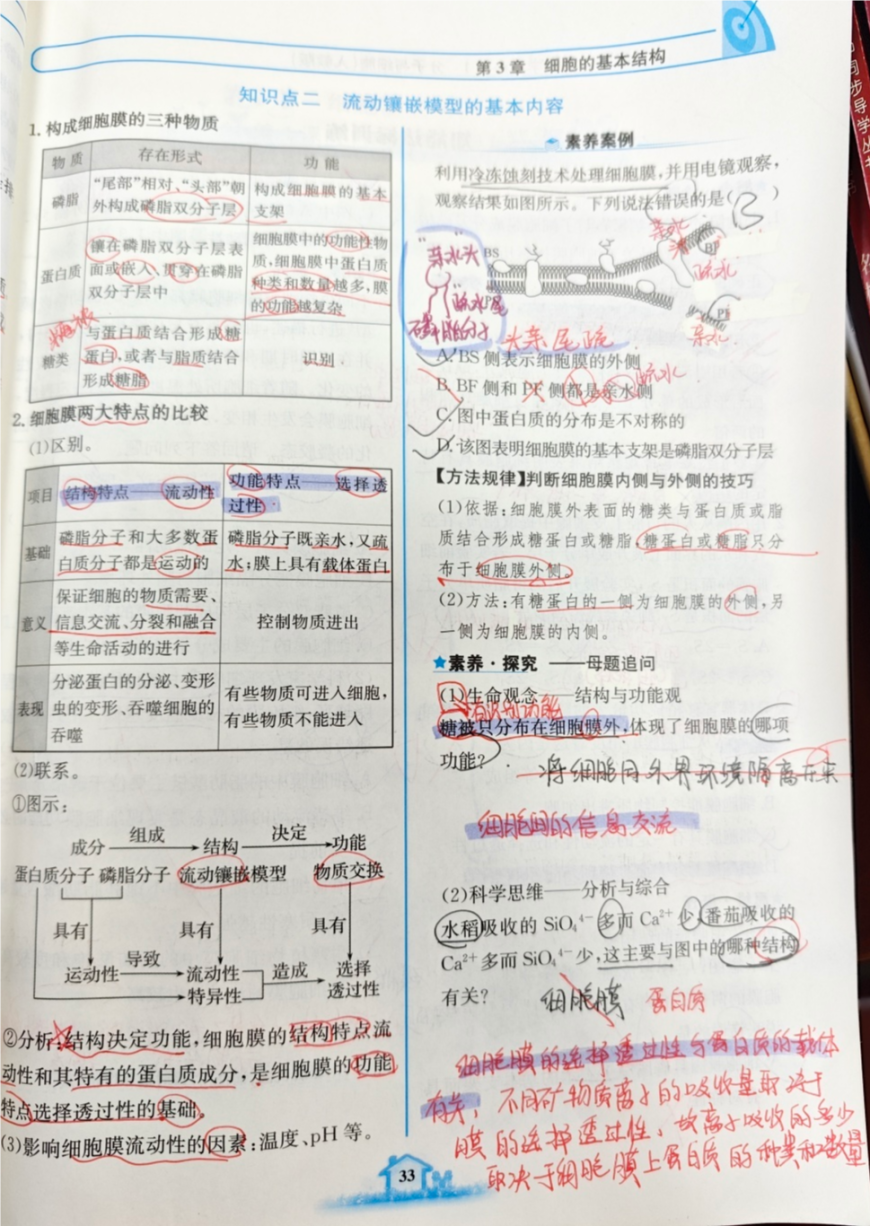 第3章 细胞的基本结构
知识点二 流动镶嵌模型的基本内容
1.构成细胞膜的三种物质
物质 存在形式 功能
磷脂
“尾部”相对、“头部”朝
外构成磷脂双分子层
构成细胞膜的基本
支架
蛋白质
镶在磷脂双分子层表
面或嵌入、贯穿在磷脂
双分子层中
细胞膜中的功能性物
质,细胞膜中蛋白质
种类和数量越多,膜
的功能越复杂
糖被
糖类
与蛋白质结合形成糖
蛋白,或者与脂质结合
形成糖脂
识别
2.细胞膜两大特点的比较
(1)区别。
项目
结构特点——流动性
功能特点——选择透
过性
基础
磷脂分子和大多数蛋
白质分子都是运动的
磷脂分子既亲水,又疏
水;膜上具有载体蛋白
意义
保证细胞的物质需要、
信息交流、分裂和融合
等生命活动的进行
控制物质进出
表现
分泌蛋白的分泌、变形
虫的变形、吞噬细胞的
吞噬
有些物质可进入细胞,
有些物质不能进入
(2)联系。
①图示:
成分 组成 结构 决定 功能
蛋白质分子 磷脂分子 流动镶嵌模型 物质交换
具有 具有 具有
运动性 导致 流动性 造成 选择
特异性 透过性
②分析:结构决定功能,细胞膜的结构特点流
动性和其特有的蛋白质成分,是细胞膜的功能
特点选择透过性的基础。
(3)影响细胞膜流动性的因素:温度、pH 等。
素养案例
利用冷冻蚀刻技术处理细胞膜,并用电镜观察,
观察结果如图所示。下列说法错误的是( B )
亲水头
疏水尾
磷脂分子
BS
亲水
BF
疏水
PF
亲水
头亲尾疏
A. BS 侧表示细胞膜的外侧
B. BF 侧和 PF 侧都是亲水侧
疏水
C. 图中蛋白质的分布是不对称的
D. 该图表明细胞膜的基本支架是磷脂双分子层
【方法规律】判断细胞膜内侧与外侧的技巧
(1)依据:细胞膜外表面的糖类与蛋白质或脂
质结合形成糖蛋白或糖脂,糖蛋白或糖脂只分
布于细胞膜外侧。
(2)方法:有糖蛋白的一侧为细胞膜的外侧,另
一侧为细胞膜的内侧。
★素养·探究 ——母题追问
(1)生命观念——结构与功能观
有识别功能
糖被只分布在细胞膜外,体现了细胞膜的哪项
功能?
将细胞同外界环境隔离开来
细胞间的信息交流
(2)科学思维——分析与综合
水稻吸收的 SiO₄⁴⁻多而 Ca²⁺少,番茄吸收的
Ca²⁺多而 SiO₄⁴⁻少,这主要与图中的哪种结构
有关?
细胞膜 蛋白质
细胞膜的选择透过性与蛋白质的载体
有关,不同矿物质离子的吸收量取决于
膜的选择透过性,故离子吸收的多少
取决于细胞膜上蛋白质的种类和数量
33